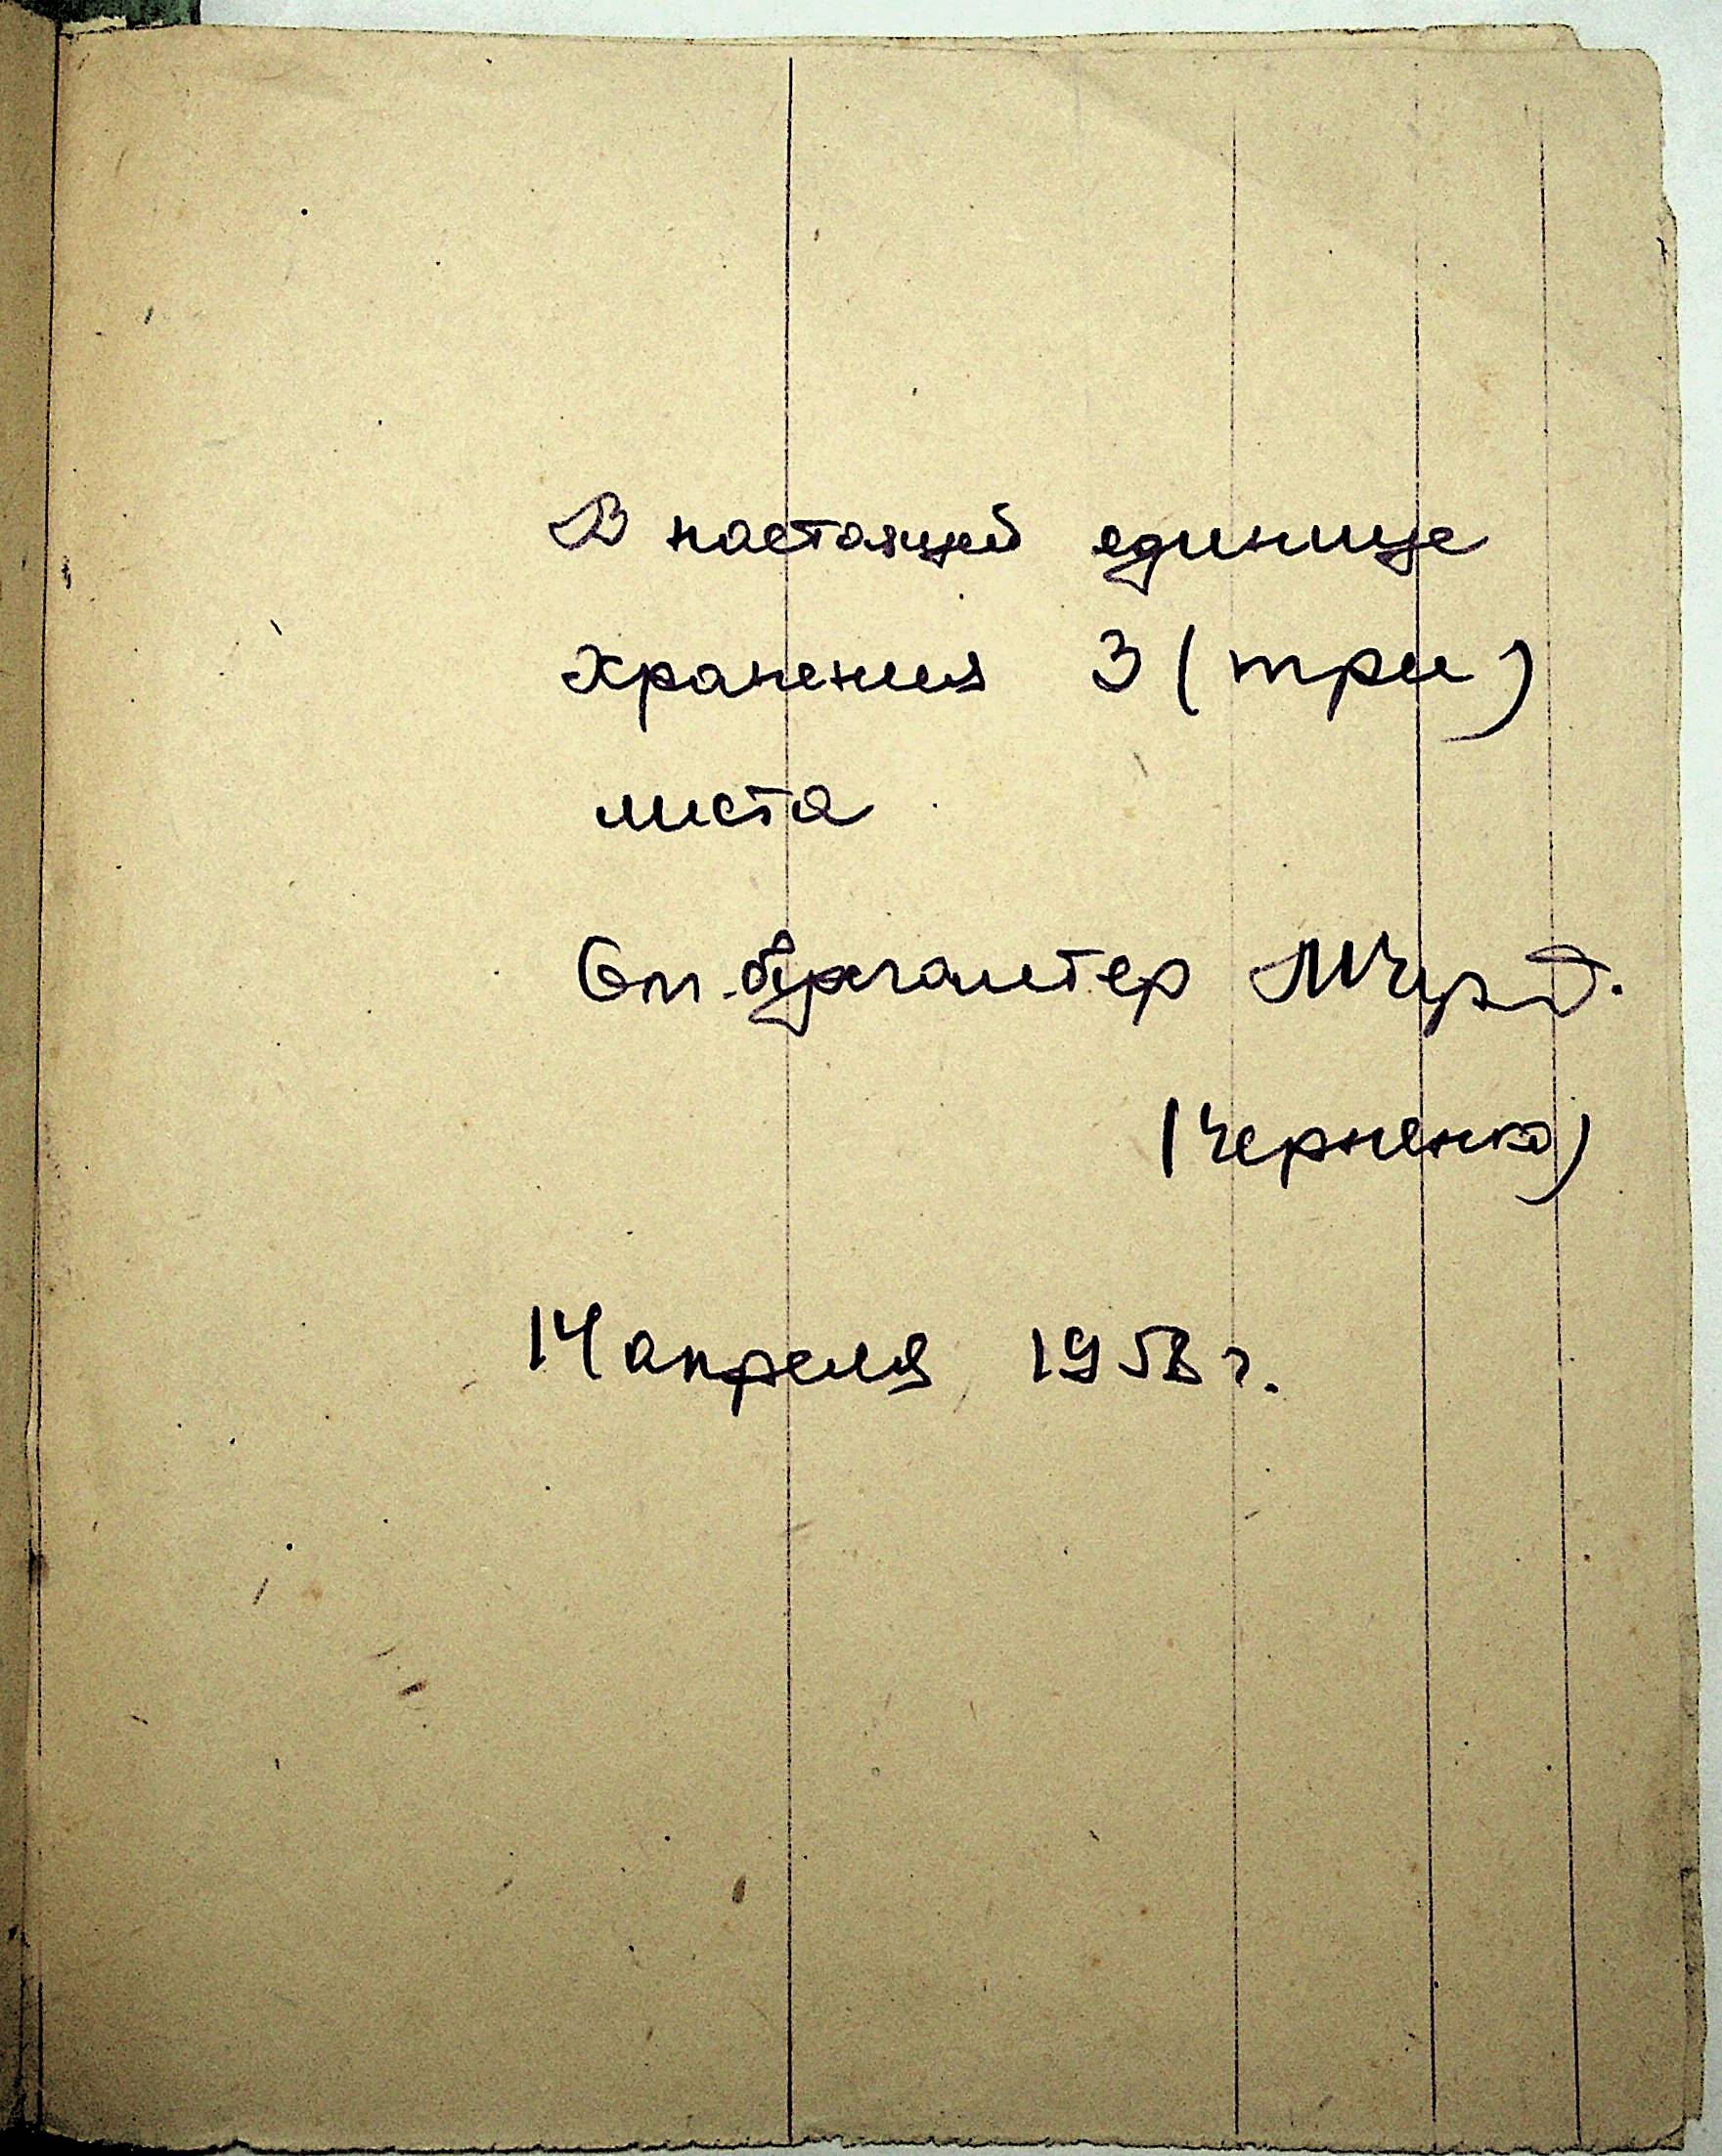 В настоящей единице
хранения 3 (три)
листа
Ст. бухгалтер
(Черненко)
14 апреля 1958 г.